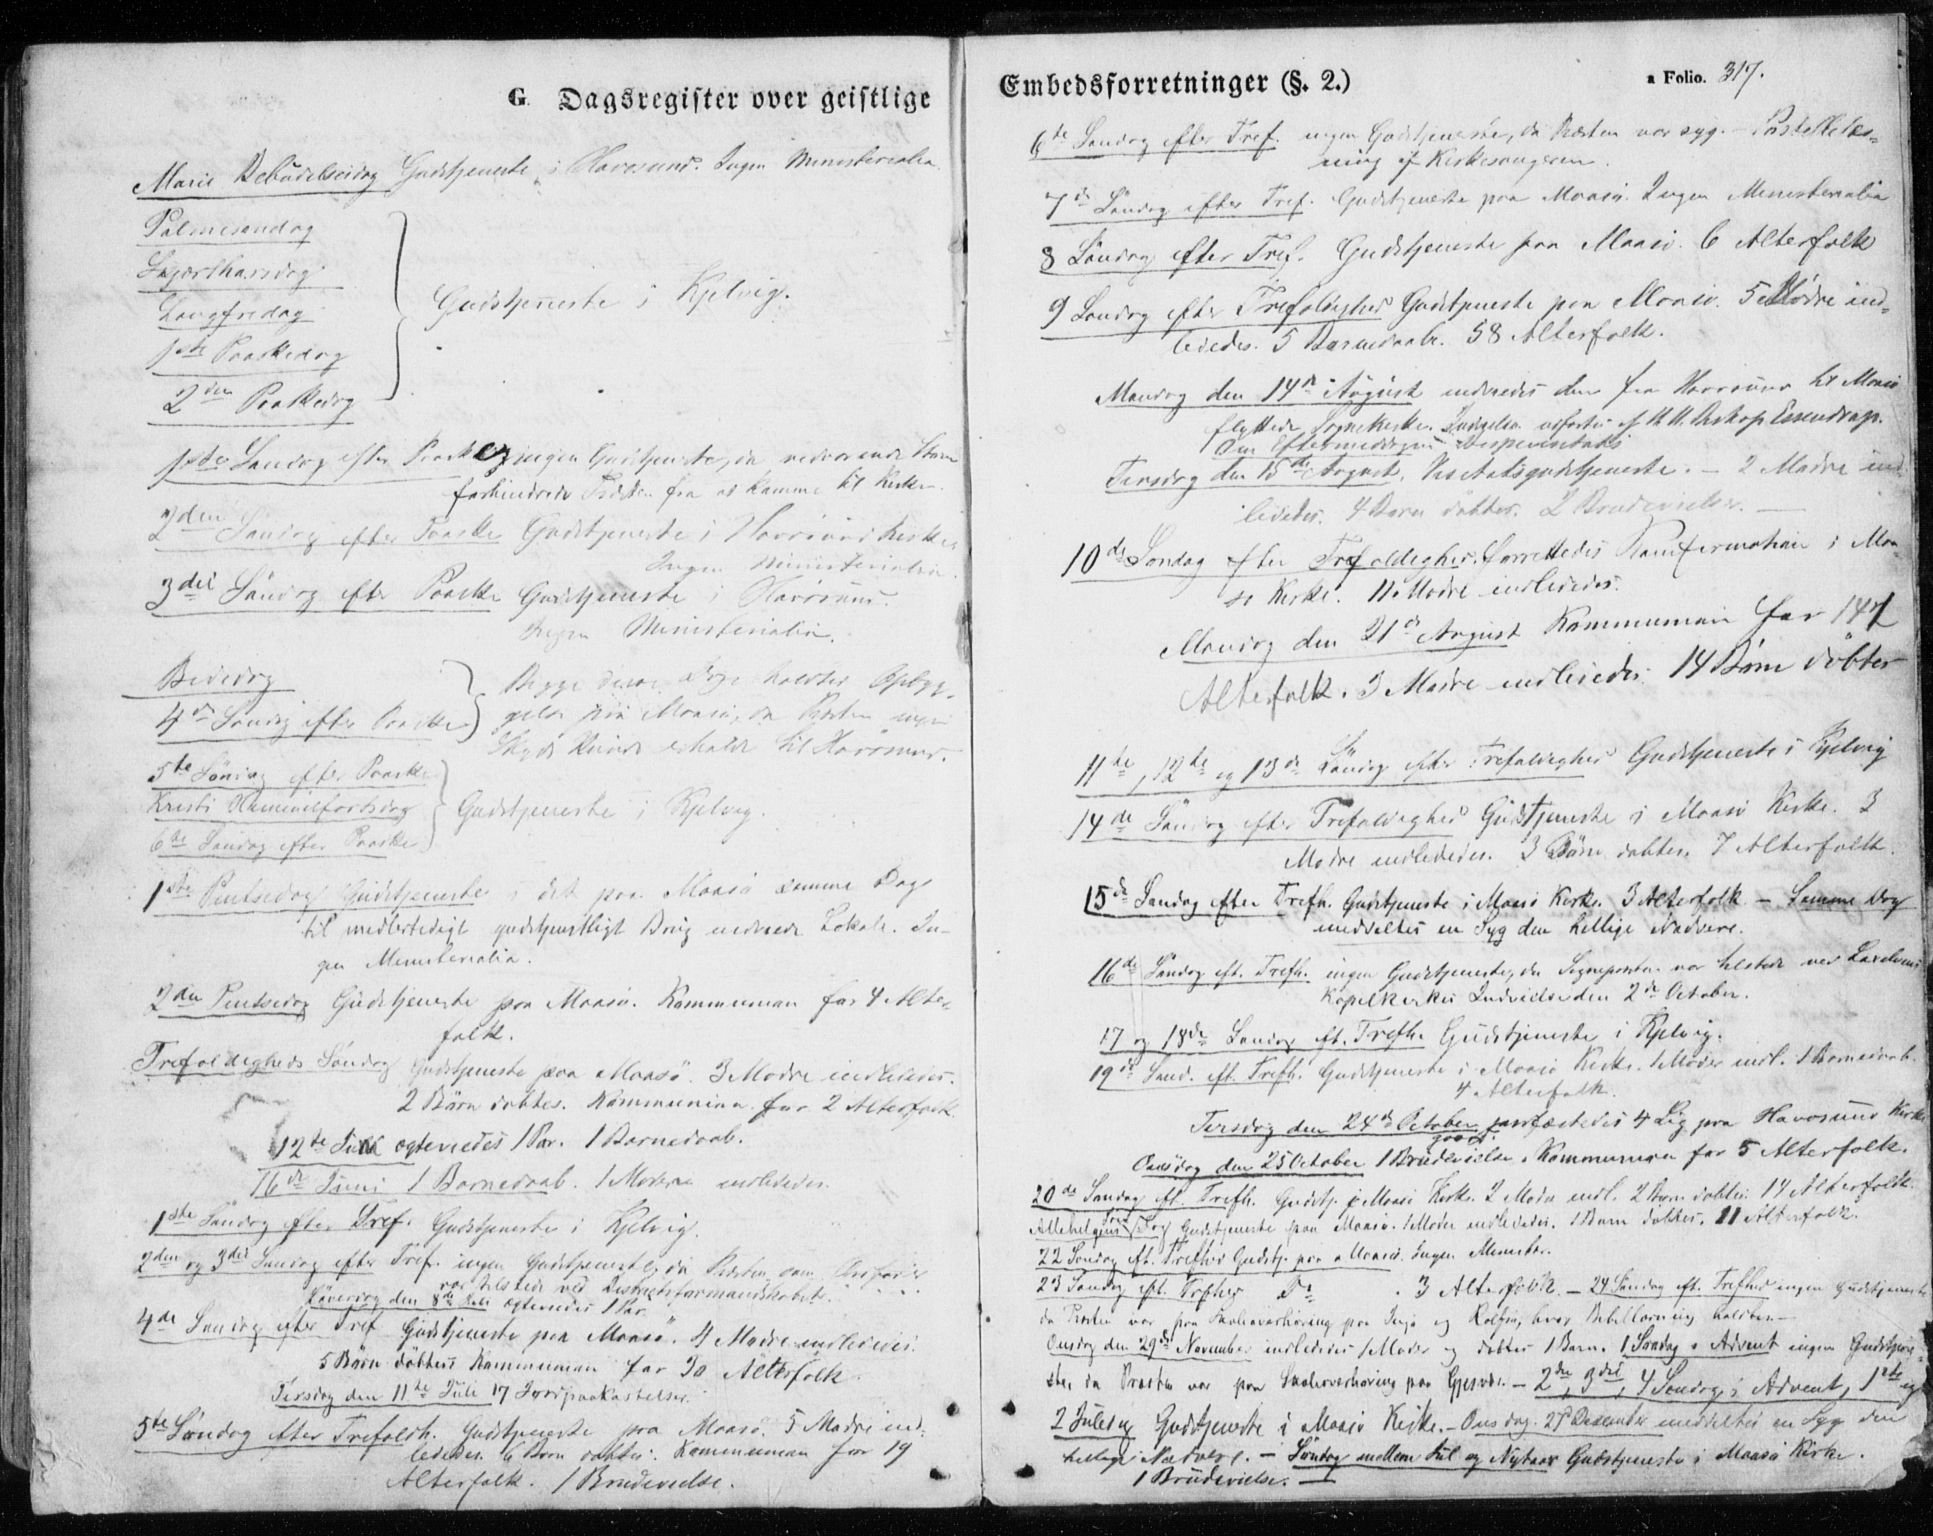 G. Dagsregister over geistlige
Marie Bebudelsesdag Gudstjeneste i Havøsund. Ingen Ministerialia
Palmesøndag
Skjærthorsdag
Langfredag
1ste Paaskedag
2den Paaskedag
Gudstjeneste i Kjelvig.
1ste Søndag efter Paaske ingen Gudstjeneste, da vedvarende Storm
forhindrede Præsten fra at komme til Kirken.
2den Søndag efter Paaske Gudstjeneste i Havøsund Kirke
Ingen Ministerialia.
3die Søndag efter Paaske Gudstjeneste i Havøsund.
Ingen Ministerialia.
Bededag
4de Søndag efter Paaske
Begge disse Dage holdtes Opbyg-
gelse paa Maasø, da Præsten ingen
Skyds kunde erholde til Havøsund.
5te Søndag efter Paaske
Kristi Himmelfartsdag
6te Søndag efter Paaske
Gudstjeneste i Kjelvig.
1ste Pintsedag Gudstjeneste i det paa Maasø samme Dag
til midlertidigt gudstjenstligt Brug indviede Lokale. In-
gen Ministerialia.
2den Pintsedag Gudstjeneste paa Maasø. Kommunion for 4 Alter-
folk.
Trefoldigheds Søndag Gudstjeneste paa Maasø. 3 Mødre indlededes.
2 Børn døbtes. Kommunion for 2 Alterfolk.
12te Juni egteviedes 1 Par. 1 Barnedaab.
16de Juni 1 Barnedaab. 1 Moder indlededes.
1ste Søndag efter Tref. Gudstjeneste i Kjelvig.
2den og 3die Søndag efter Tref. ingen Gudstjeneste, da Præsten som Ordfører
var tilstede ved Distriktsformandskabet.
Løverdag den 8de Juli egteviedes 1 Par.
4de Søndag efter Tref Gudstjeneste paa Maasø. 4 Mødre indlededes.
5 Børn døbtes Kommunion for 30 Alterfolk.
Tirsdag den 11te Juli 17 Jordpaakastelser.
5te Søndag efter Trefoldh. Gudstjeneste paa Maasø. 5 Mødre ind-
lededes. 6 Børn døbtes. Kommunion for 19
Alterfolk. 1 Brudevielse.
Embedsforretninger (§. 2.)
a Folio. 317.
6te Søndag efter Tref. ingen Gudstjeneste, da Præsten var syg. - Postillelæs-
ning af Kirkesangeren.
7de Søndag efter Tref. Gudstjeneste paa Maasø. Ingen Ministerialia
8 Søndag efter Tref. Gudstjeneste paa Maasø. 6 Alterfolk
9 Søndag efter Trefoldighed Gudstjeneste paa Maasø. 5 Mødre ind-
lededes. 5 Barnedaab. 58 Alterfolk.
Mandag den 14de August indviedes den fra Havøsund til Maasø
flyttede Sognekirke. Indvielsen udførtes af H. H. Biskop Essendrop.
Om Eftermiddagen
Tirsdag den 15de August. Visitatsgudstjeneste. - 2 Mødre ind-
lededes. 4 Børn døbtes. 2 Brudevielser. -
10de Søndag efter Trefoldighed. forrettedes Konfirmation i Maa-
sø Kirke. 11 Mødre indlededes.
Mandag den 21de August Kommunion for 147
Alterfolk. 3 Mødre indlededes. 14 Børn døbtes
11te, 12te og 13de Søndag efter Trefoldighed Gudstjeneste i Kjelvig
14de Søndag efter Trefoldighed Gudstjeneste i Maasø Kirke. 3
Mødre indlededes. 3 Børn døbtes. 7 Alterfolk.
15de Søndag efter Trefh. Gudstjeneste i Maasø Kirke. 3 Alterfolk - Samme Dag
meddeltes en Syg den hellige Nadvere.
16de Søndag eft. Trefh. ingen Gudstjeneste, da Sognepræsten var tilstede ved Laxelvens
Kapelkirkes Indvielse den 2den October.
17 og 18de Søndag eft. Trefh. Gudstjeneste i Kjelvig.
19de Sønd. eft. Trefh. Gudstjeneste i Maasø Kirke. 1 Moder indl. 1 Barnedaab.
4 Alterfolk.
Tirsdag den 24de October jordfæstedes 4 Lig paa Havøsund Kirke
gaard.
Onsdag den 25 October 1 Brudevielse. Kommunion for 5 Alterfolk.
20de Søndag eft. Trefh. Gudstj. i Maasø Kirke. 2 Mødre indl. 2 Børn døbtes. 14 Alterfolk.
Allehelgens Dag Gudstjeneste paa Maasø. 1 Moder indlededes. 1 Barn døbtes. 11 Alterfolk.
22 Søndag eft. Trefhed Gudstj. paa Maasø. Ingen Minister.
23 Søndag eft. Trefhed Do . 3 Alterfolk. - 24 Søndag eft. Trefhed ingen Gudstjeneste
da Præsten var paa Skoleoverhøring paa Ingø og Rolfsø, hvor Bibellæsning holdtes. -
Onsdag den 29de November indlededes 1 Moder og døbtes 1 Barn. 1 Søndag i Advent ingen Gudstjene-
ste, da Præsten var paa Skoleoverhøring paa Gjesvær. - 2den, 3die, 4 Søndag i Advent, 1ste og
2 Juledag Gudstjeneste i Maasø Kirke. - Onsdag 27 Dezember meddeltes en Syg den
hellige Nadvere. - Søndag mellem Jul og Nytaar Gudstjeneste i Maasø Kirke.
1 Brudevielse. -